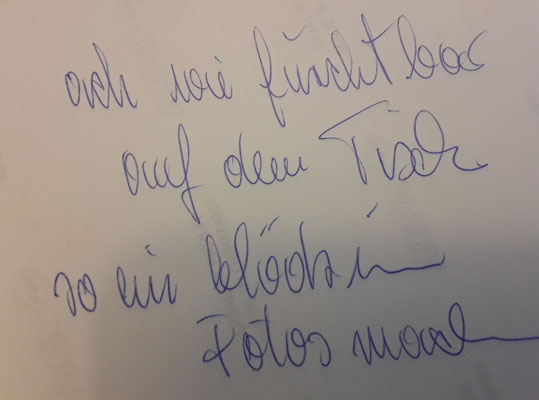 ach wie furchtbar
auf dem Tisch
so ein blödsin
Fotos mach